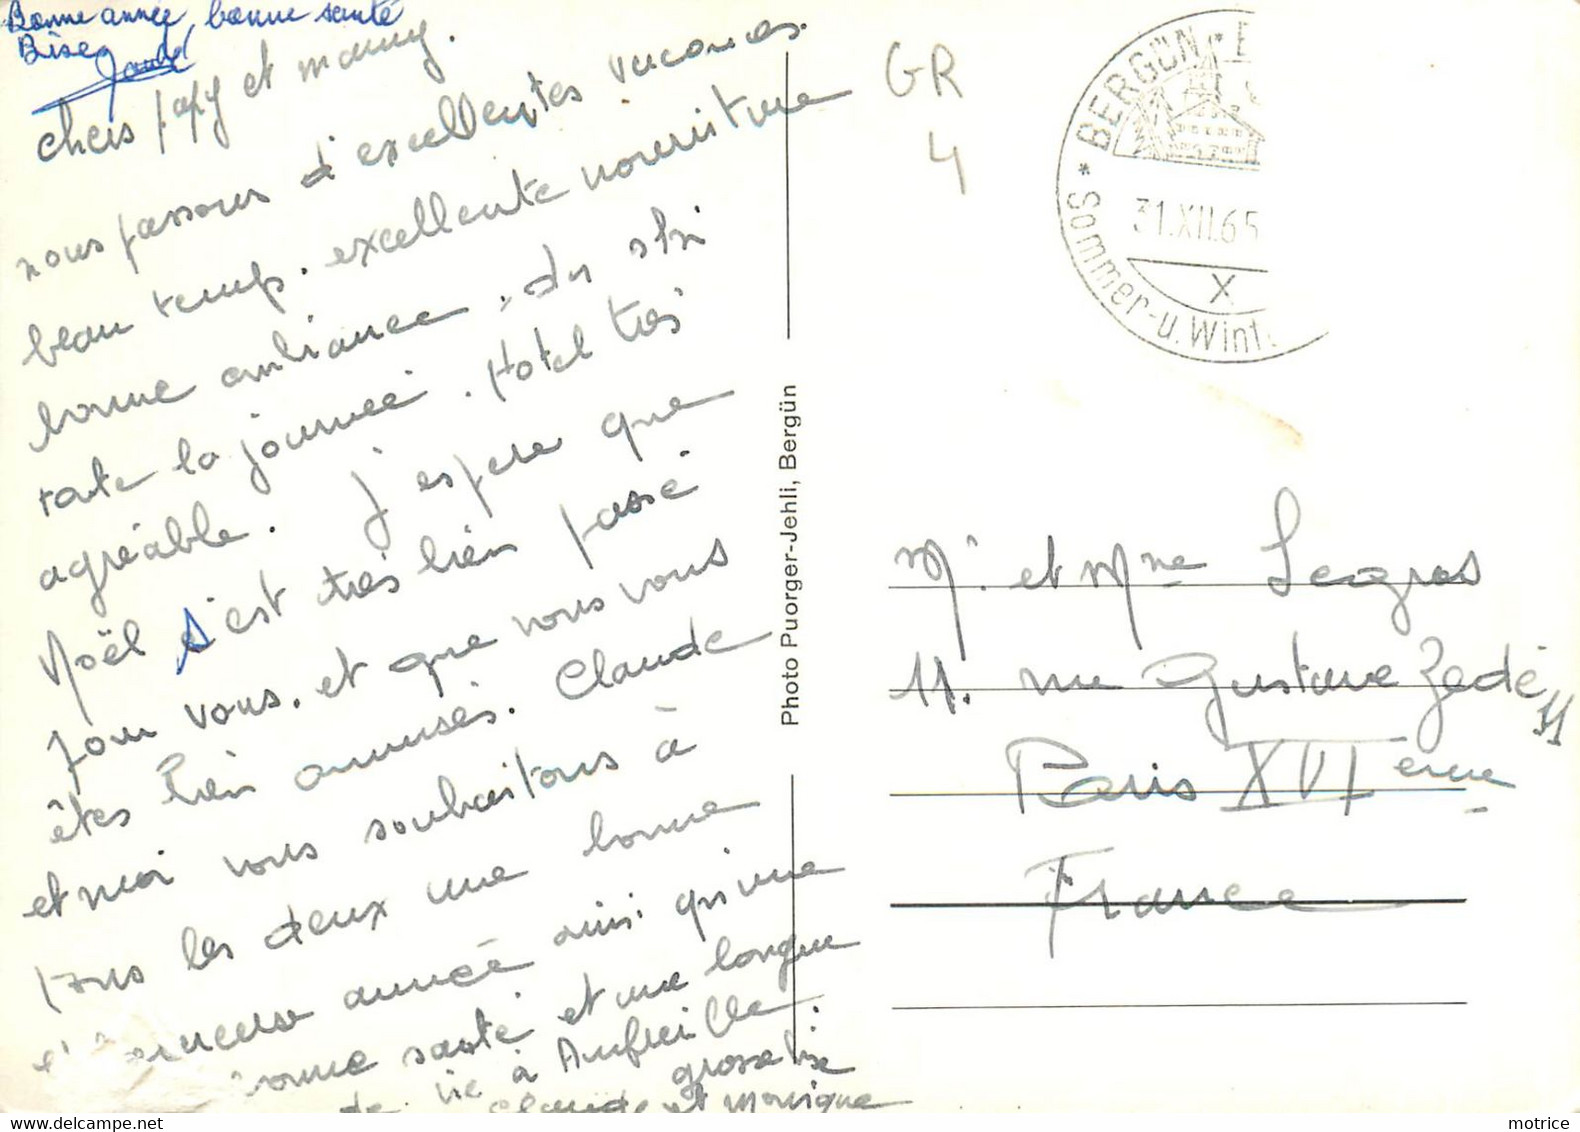 Bonne année, bonne santé
Bises
chers papy et mamy.
nous passons d'excellentes vacances.
beau temps. excellente nourriture
bonne ambiance, du ski
toute la journée. Hotel très
agréable. J'espère que
Noël s'est très bien passé
pour vous. et que vous vous
êtes bien amusés. Claude
et moi vous souhaitons à
tous les deux une bonne
et heureuse année ainsi qu'une
bonne santé et une longue
de vie à Anfreville.
grosse bise
Claude et Monique
Photo Puorger-Jehli, Bergün
GR
4
* BERGÜN * B
31.XII.65
X
Sommer- u. Wint
Mr. et Mme Legros
11. rue Gustave Zédé
11
Paris XVI eme
France
motrice